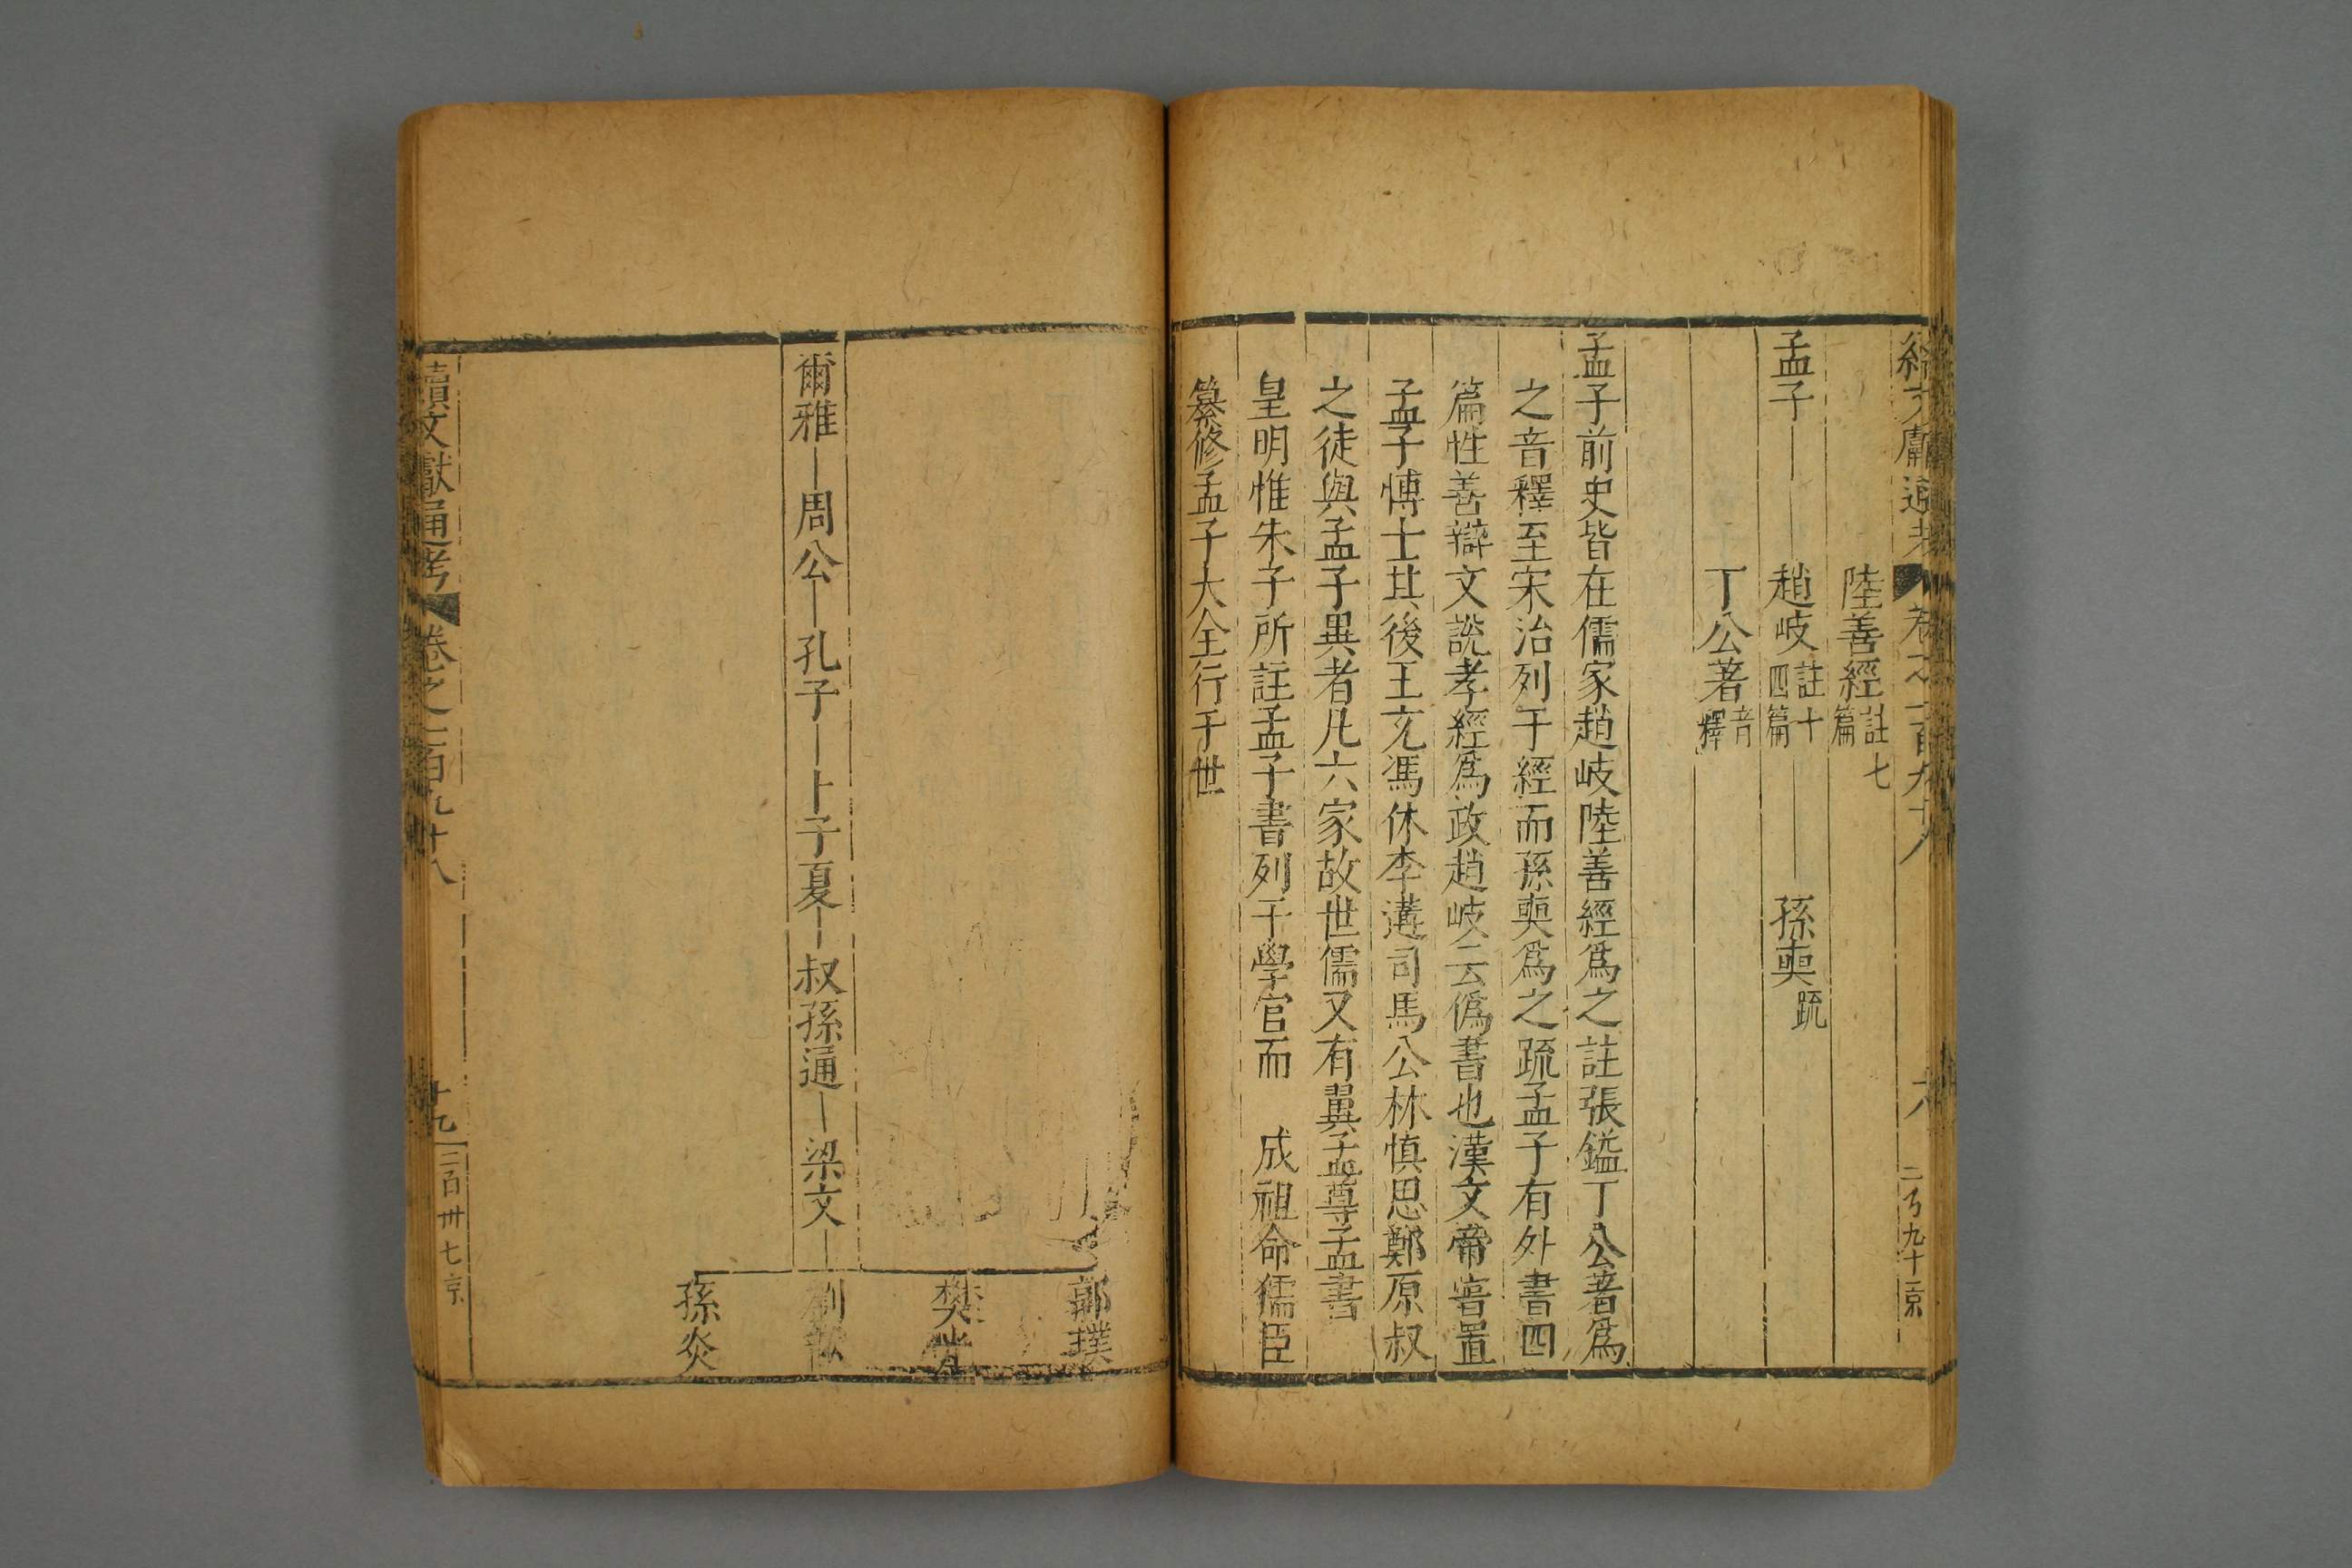 續文獻通考 卷之一百九十八 十八 二百九十京
陸善經註七篇
孟子 趙岐註十四篇 孫奭疏
丁公著音釋
孟子前史皆在儒家趙岐陸善經爲之註張鎰丁公著爲
之音釋至宋治列于經而孫奭爲之疏孟子有外書四
篇性善辯文說孝經爲政趙岐云僞書也漢文帝嘗置
孟子博士其後王充馮休李遘司馬公林愼思鄭原叔
之徒與孟子異者凡六家故世儒又有翼孟尊孟書
皇明惟朱子所註孟子書列于學官而 成祖命儒臣
纂修孟子大全行于世
郭璞
樊光
爾雅 周公 孔子 卜子夏 叔孫通 梁文 劉歆
孫炎
續文獻通考 卷之一百九十八 十九 二百卅七京